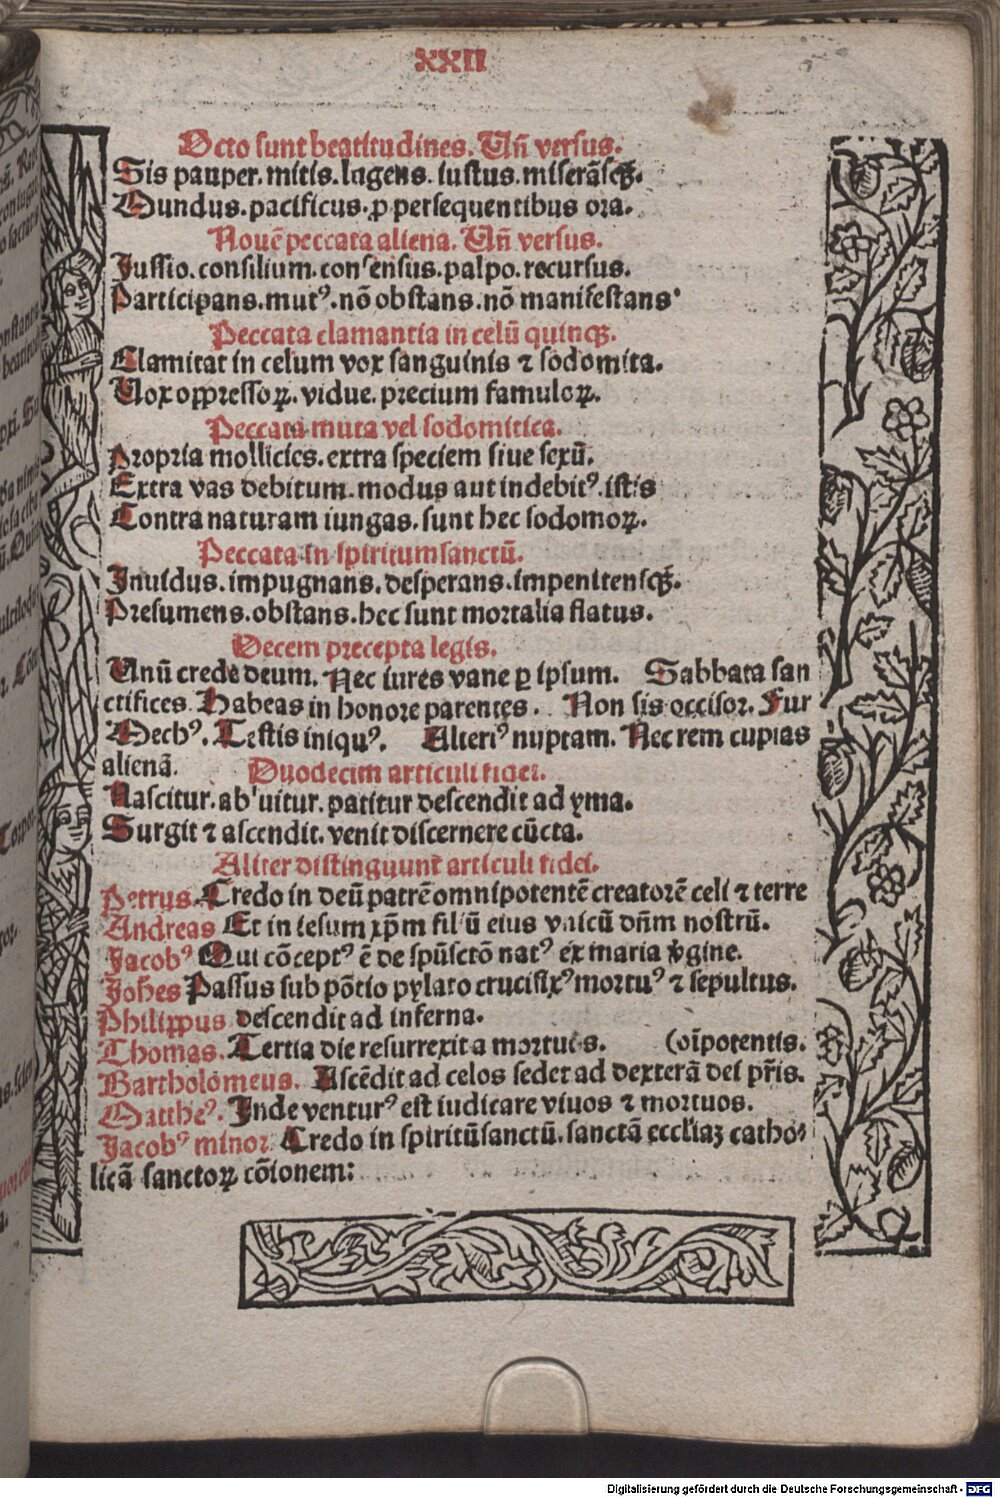 XXII
Octo sunt beatitudines. Uñ versus.
Sis pauper. mitis. lugens. iustus. miserãsqꝫ.
Mundus. pacificus. ꝓ persequentibus ora.
Nouẽ peccata aliena. Uñ versus.
Jussio. consilium. consensus. palpo. recursus.
Participans. mutꝰ. nõ obstans. nõ manifestans
Peccata clamantia in celũ quinqꝫ.
Clamitat in celum vox sanguinis ⁊ sodomita.
Uox oppressoꝝ. vidue. precium famuloꝝ.
Peccata muta vel sodomitica.
Propria mollicies. extra speciem siue sexũ.
Extra vas debitum. modus aut indebitꝰ. istis
Contra naturam iungas. sunt hec sodomoꝝ.
Peccata in spiritumsanctũ.
Inuidus. impugnans. desperans. impenitensqꝫ.
Presumens. obstans. hec sunt mortalia flatus.
Decem precepta legis.
Unũ crede deum. Nec iures vane ꝑ ipsum. Sabbata san
ctifices Habeas in honore parentes. Non sis occisor. Fur
Mechꝰ. Testis iniquꝰ. Alteriꝰ nuptam. Nec rem cupias
alienã. Duodecim articuli fidei.
Nascitur. abluitur. patitur descendit ad yma.
Surgit ⁊ ascendit. venit discernere cũcta.
Aliter distinguunt̃ articuli fidei.
Petrus. Credo in deũ patrẽ omnipotentẽ creatorẽ celi ⁊ terre
Andreas Et in iesum xp̃m filiũ eius vnicũ dñm nostrũ.
Jacobꝰ Qui cõceptꝰ ẽ de spũsctõ natꝰ ex maria v̾gine.
Joh̃es Passus sub põtio pylato crucifixꝰ mortuꝰ ⁊ sepultus.
Philippus descendit ad inferna.
Thomas. Tertia die resurrexit a mortuis. (oĩpotentis.
Bartholomeus. Ascẽdit ad celos sedet ad dexterã dei pr̃is.
Mattheꝰ. Inde venturꝰ est iudicare viuos ⁊ mortuos.
Jacobꝰ minor Credo in spiritũsanctũ. sanctã eccl'iaꝫ catho⸗
licã sanctoꝝ cõionem:
Digitalisierung gefördert durch die Deutsche Forschungsgemeinschaft - DFG